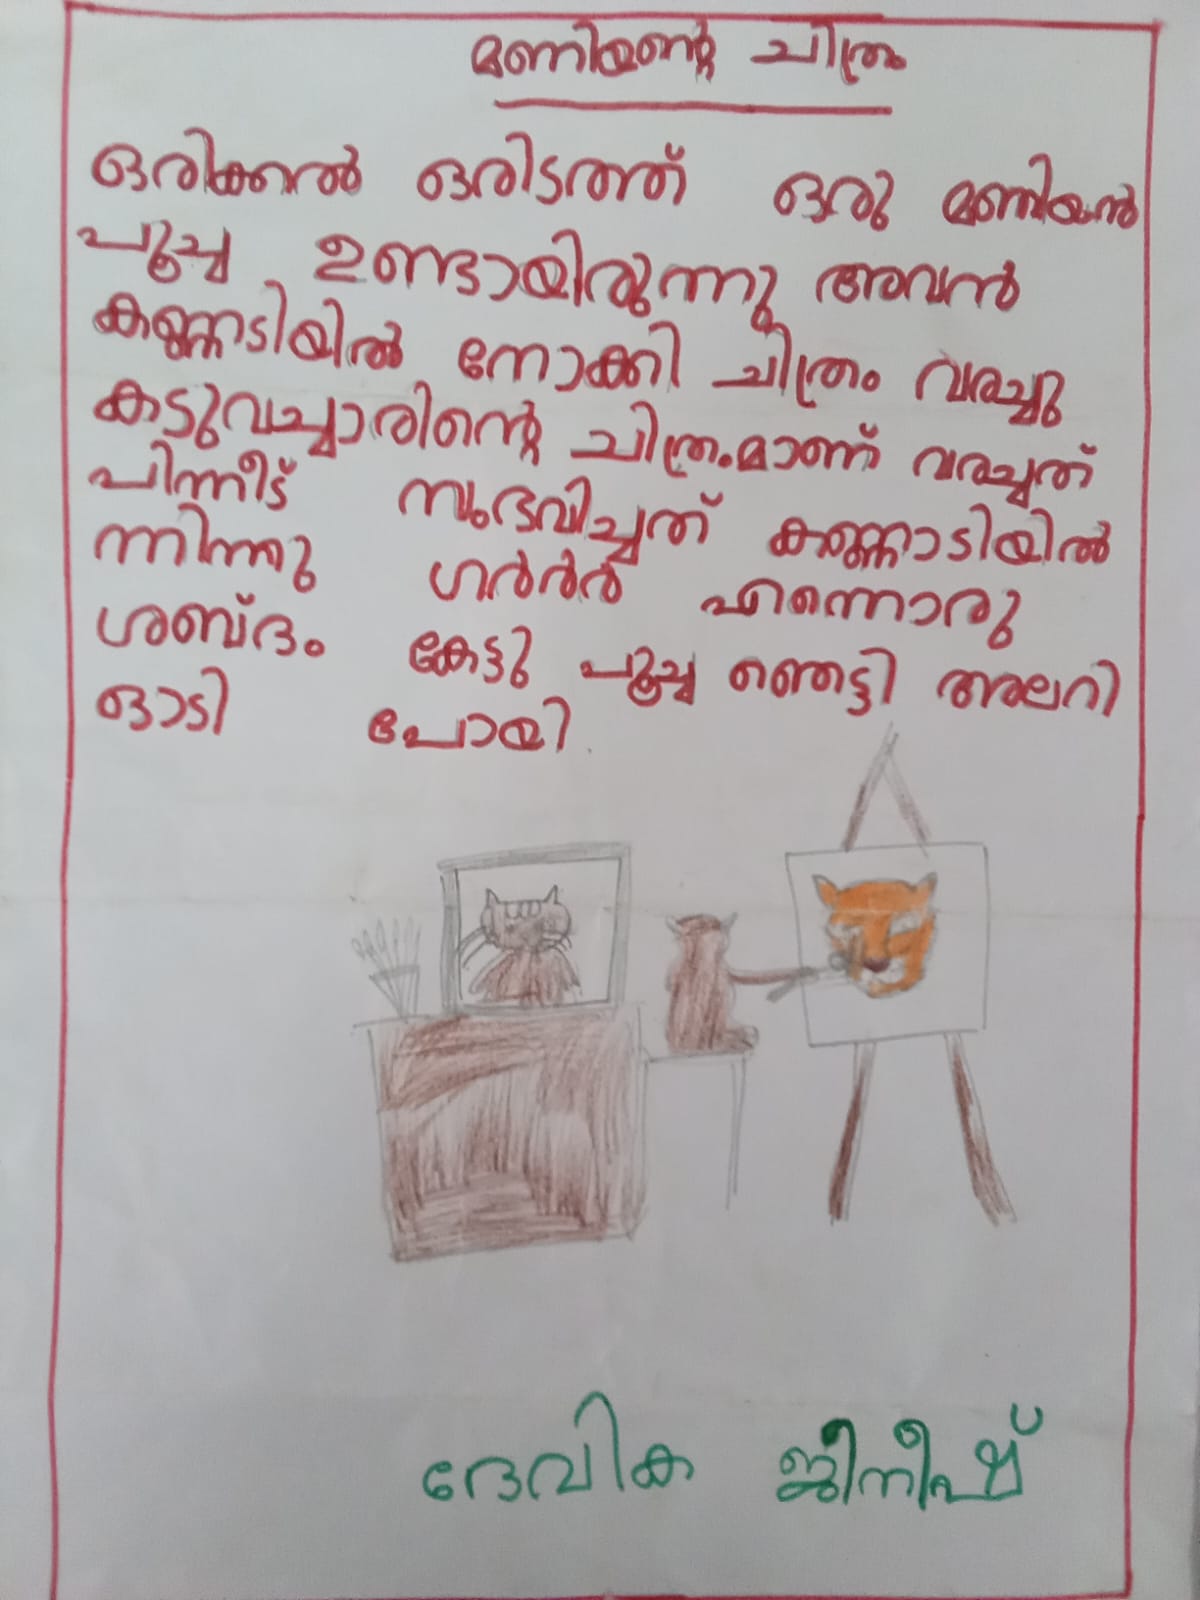 മണിയന്റെ ചിത്രം
ഒരിക്കൽ ഒരിടത്ത് ഒരു മണിയൻ
പൂച്ച ഉണ്ടായിരുന്നു അവൻ
കണ്ണടിയിൽ നോക്കി ചിത്രം വരച്ചു
കടുവച്ചാരിന്റെ ചിത്രംമാണ് വരച്ചത്
പിന്നീട് സംഭവിച്ചത് കണ്ണാടിയിൽ
ന്നിന്നു ഗർർർ എന്നൊരു
ശബ്ദം കേട്ടു പൂച്ച ഞെട്ടി അലറി
ഓടി പോയി
ദേവിക ജിനീഷ്